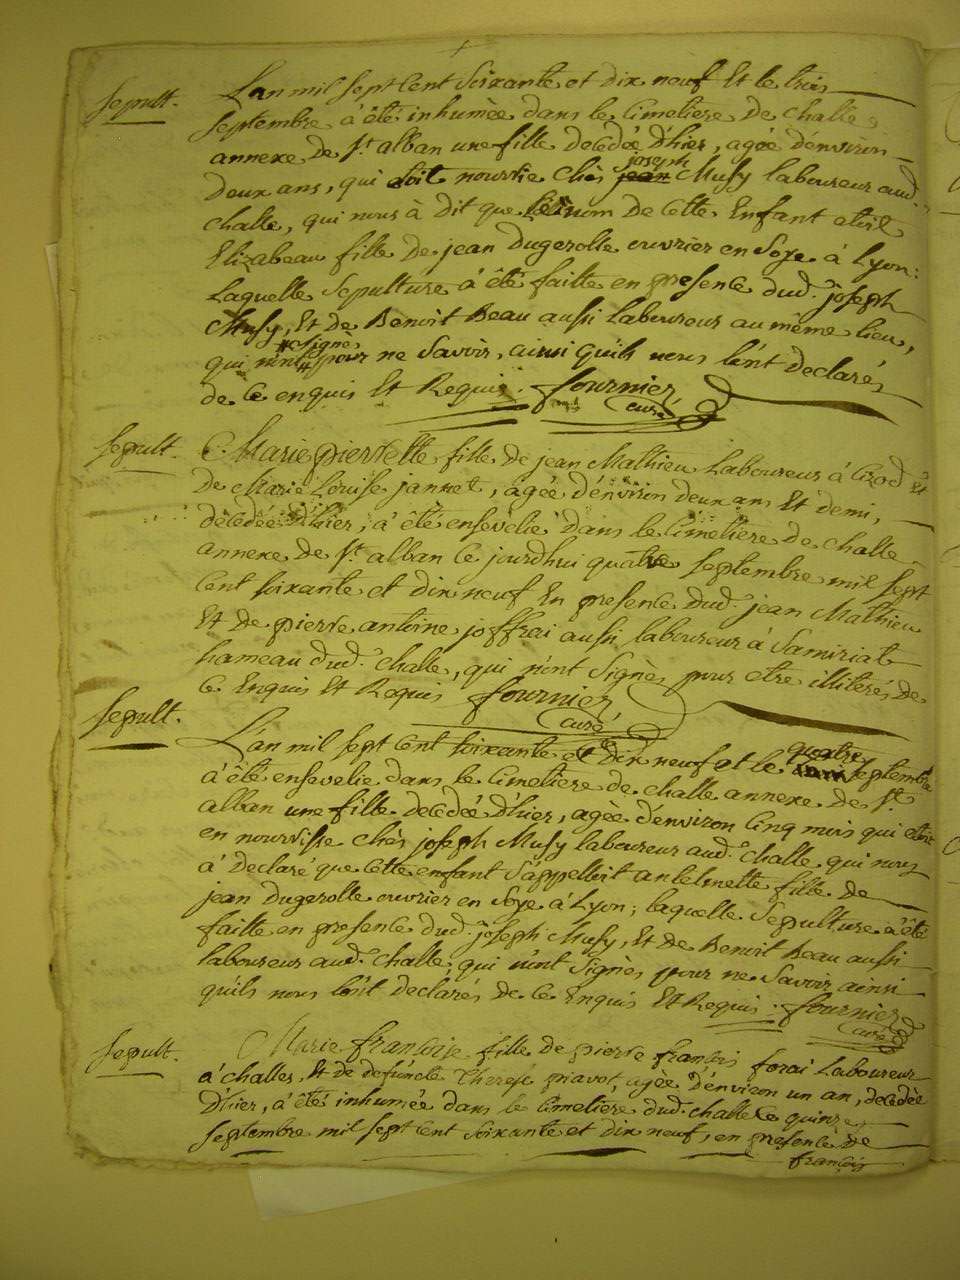 sepult. L'an mil sept cent soixante et dix neuf Et le trois
septembre à été inhumèe dans le Cimetiere de challe
annexe de St. alban une fille decedée d'hier, agée d'environ
deux ans, qui etoit nourrie chés joseph jean Musy laboureur aud.
challe, qui nous à dit que le nom de cette Enfant etoit
Elizabeau fille de jean Dugerolle ouvrier en Soye à Lyon:
laquelle Sepulture à été faitte en presence dud. joseph
Musy, Et de Benoit Beau aussi laboureur au même lieu,
qui n'ont signés pour ne Savoir, ainsi quils nous l'ont declarés
de Ce enquis Et Requis. fournier
curé
sepult. Marie pierrette fille de jean Mathieu Laboureur à Et
de Marie Louise jannet, agée d'environ deux ans Et demi,
décedée d'hier, à été ensevelie dans le Cimetiere de challe
annexe de St. alban Ce jourdhui quatre septembre mil sept
Cent soixante et dix neuf En presence dud. jean Mathieu
Et de pierre antoine joffrai aussi laboureur à Samiriat
hameau dud. challe, qui n'ont Signés pour etre illiterés de
Ce Enquis Et Requis fournier
curé
sepult. L'an mil sept cent soixante et dix neuf et le quatre septembre
à été ensevelie dans le Cimetiere de challe annexe de St.
alban une fille decedée d'hier, agée d'environ Cinq mois qui etoit
en nourrisse chés joseph Musy laboureur aud. challe qui nous
à declaré que Cette enfant s'appelloit antelmette fille de
jean Dugerolle ouvrier en Soye à Lyon; laquelle Sepulture à été
faitte en presence dud. joseph Musy, Et de Benoit Beau aussi
laboureur aud. challe; qui n'ont Signés pour ne Savoir ainsi
quils nous l'ont declarés de Ce Enquis Et Requis: fournier
curé
sepult. Marie françoise fille de pierre françois forai Laboureur
à challes, Et de defuncte Therese piavot, agée d'environ un an, decedée
D'hier, à été inhumée dans le Cimetiere dud. challe Ce quinze
septembre mil sept cent soixante et dix neuf, en presence de
françois